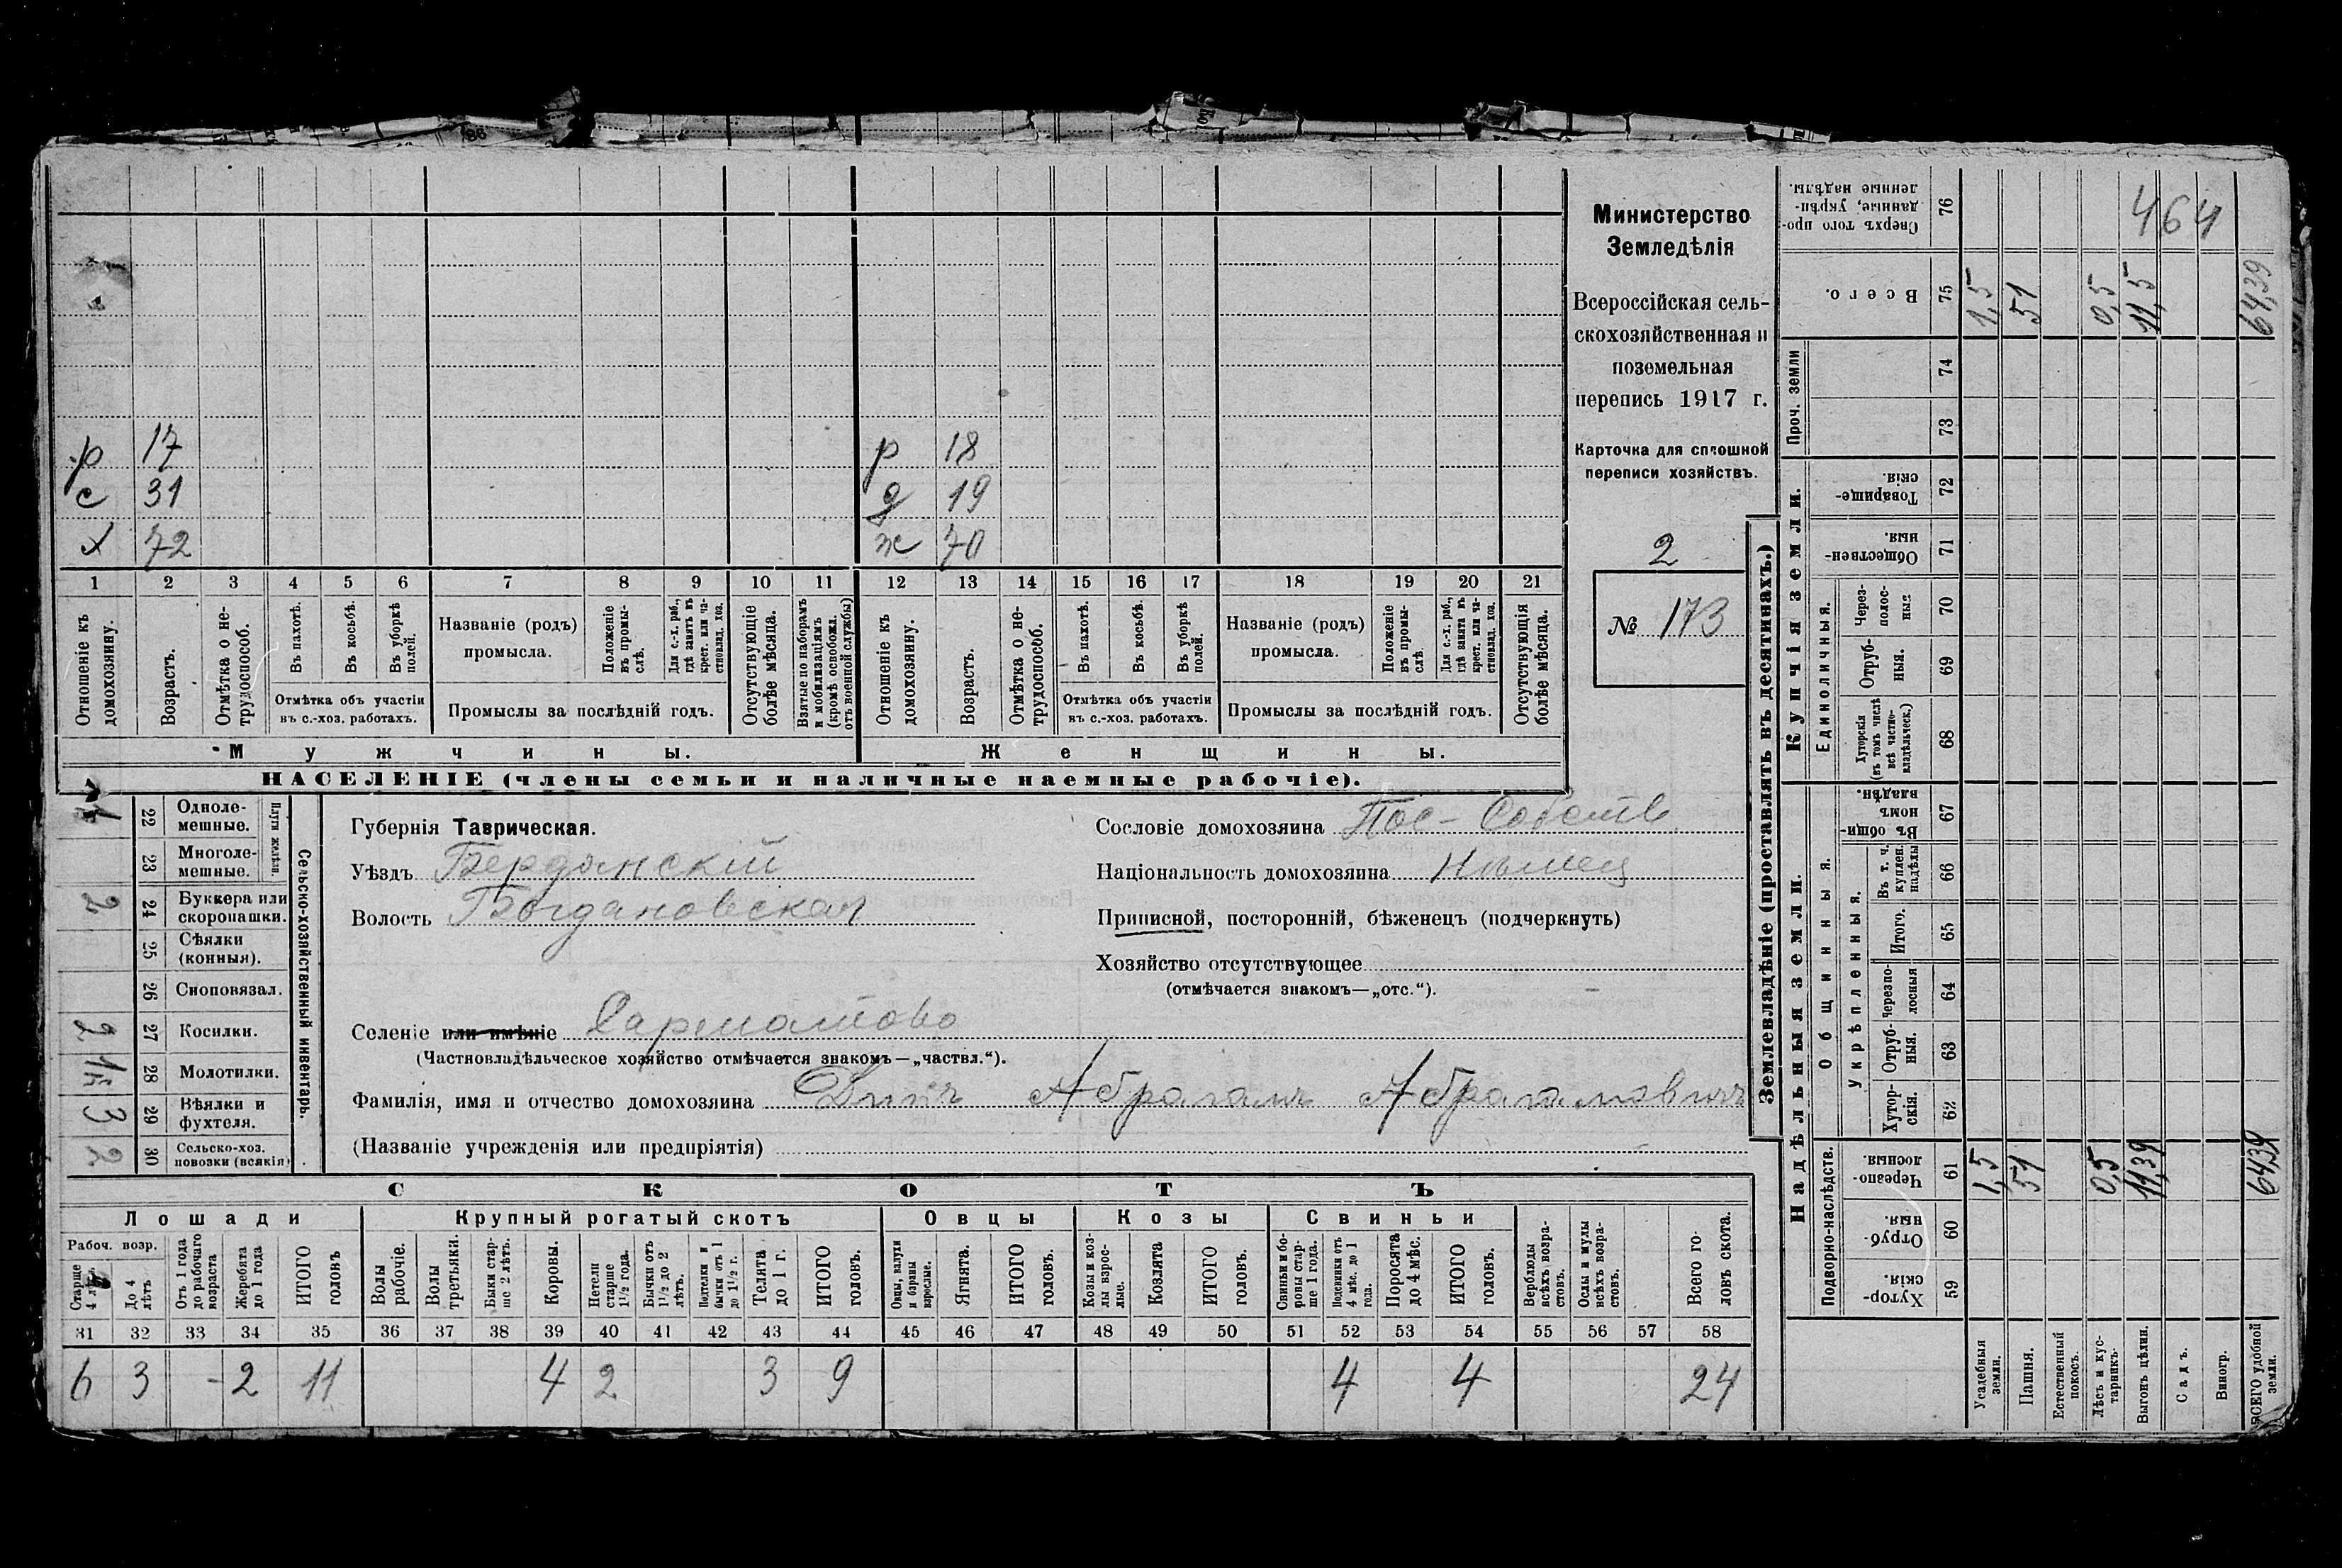 р 17 р 18
с 31 д 19
х 72 ж 70
1 2 3 4 5 6 7 8 9 10 11 12 13 14 15 16 17 18 19 20 21
Отношеніе къ домохозяину.
Возрастъ.
Отмѣтка о нетрудоспособ.
Въ пахотѣ.
Въ косьбѣ.
Въ уборкѣ полей.
Отмѣтка объ участіи
въ с.-хоз. работахъ.
Названіе (родъ)
промысла.
Положеніе въ промыслѣ.
Для с.-х. раб., гдѣ занятъ въ крест. или частновлад. хоз.
Промыслы за послѣдній годъ.
Отсутствующіе болѣе мѣсяца.
Взятые по наборамъ и мобилизаціямъ (кромѣ освобожд. отъ военной службы)
Отношеніе къ домохозяину.
Возрастъ.
Отмѣтка о нетрудоспособ.
Въ пахотѣ.
Въ косьбѣ.
Въ уборкѣ полей.
Отмѣтка объ участіи
въ с.-хоз. работахъ.
Названіе (родъ)
промысла.
Положеніе въ промыслѣ.
Для с.-х. раб., гдѣ занята въ крест. или частновлад. хоз.
Промыслы за послѣдній годъ.
Отсутствующія болѣе мѣсяца.
Мужчины. Женщины.
НАСЕЛЕНІЕ (члены семьи и наличные наемные рабочіе).
Министерство
Земледѣлія
Всероссійская сель-
скохозяйственная и
поземельная
перепись 1917 г.
Карточка для сплошной
переписи хозяйствъ.
2
№ 173
Сельско-хозяйственный инвентарь.
Плуги желѣзн.
22 Одноле-
мешные.
23 Многоле-
мешные.
2 24 Буккера или
скоропашки.
25 Сѣялки
(конныя).
26 Сноповязал.
2 27 Косилки.
28 Молотилки.
3 29 Вѣялки и
фухтеля.
2 30 Сельско-хоз.
повозки (всякія)
Губернія Таврическая.
Уѣздъ Бердянскій
Волость Богдановская
Селеніе или имѣніе Сарматово
(Частновладѣльческое хозяйство отмѣчается знакомъ—„частвл.“).
Фамилія, имя и отчество домохозяина Дикъ Абрагамъ Абрагамовичъ
(Названіе учрежденія или предпріятія)
Сословіе домохозяина Пос-Собств.
Національность домохозяина Нѣмец
Приписной, посторонній, бѣженецъ (подчеркнуть)
Хозяйство отсутствующее
(отмѣчается знакомъ—„отс.“).
СКОТЪ
Лошади Крупный рогатый скотъ Овцы Козы Свиньи
Рабоч. возр.
Старше 4 лѣтъ
До 4 лѣтъ
Отъ 1 года до рабочаго возраста
Жеребята до 1 года
ИТОГО головъ
Волы рабочіе.
Волы третьяки.
Быки старше 2 лѣтъ.
Коровы.
Нетели старше 1 1/2 года.
Бычки отъ 1 1/2 до 2 лѣтъ.
Подтелки и бычки отъ 1 до 1 1/2 г.
Телята до 1 г.
ИТОГО головъ.
Овцы, валухи и бараны взрослые.
Ягнята.
ИТОГО головъ.
Козы и козлы взрослые.
Козлята
ИТОГО головъ.
Свиньи и боровы старше 1 года.
Подсвинки отъ 4 мѣс. до 1 года.
Поросята до 4 мѣс.
ИТОГО головъ.
Верблюды всѣхъ возрастовъ.
Ослы и мулы всѣхъ возрастовъ.
Всего головъ скота.
31 32 33 34 35 36 37 38 39 40 41 42 43 44 45 46 47 48 49 50 51 52 53 54 55 56 57 58
6 3 -2 11 4 2 3 9 4 4 24
Землевладѣніе (проставлять въ десятинахъ.)
Купчія земли.
Надѣльныя земли.
Сверхъ того проданные, укрѣпленные надѣлы. 76 464
Всего. 75 1,5 51 0,5 11,5 64,39
Проч. земли
74
73
Товарищескія. 72
Общественныя. 71
Единоличныя.
Черезполосныя 70
Отрубныя. 69
Хуторскія (въ томъ числѣ всѣ частновладѣльческ.) 68
Общинныя.
Въ общинномъ владѣн. 67
Укрѣпленныя.
Въ т. ч. куплен. надѣлы 66
Итого. 65
Черезполосныя 64
Отрубныя. 63
Хуторскія. 62
Подворно-наслѣдств.
Черезполосныя. 61 1,5 51 0,5 11,39 64,39
Отрубныя. 60
Хуторскія. 59
Усадебныя земли.
Пашня.
Естественный покосъ.
Лѣсъ и кустарникъ.
Выгонъ цѣлин.
Садъ.
Виногр.
ВСЕГО удобной земли.